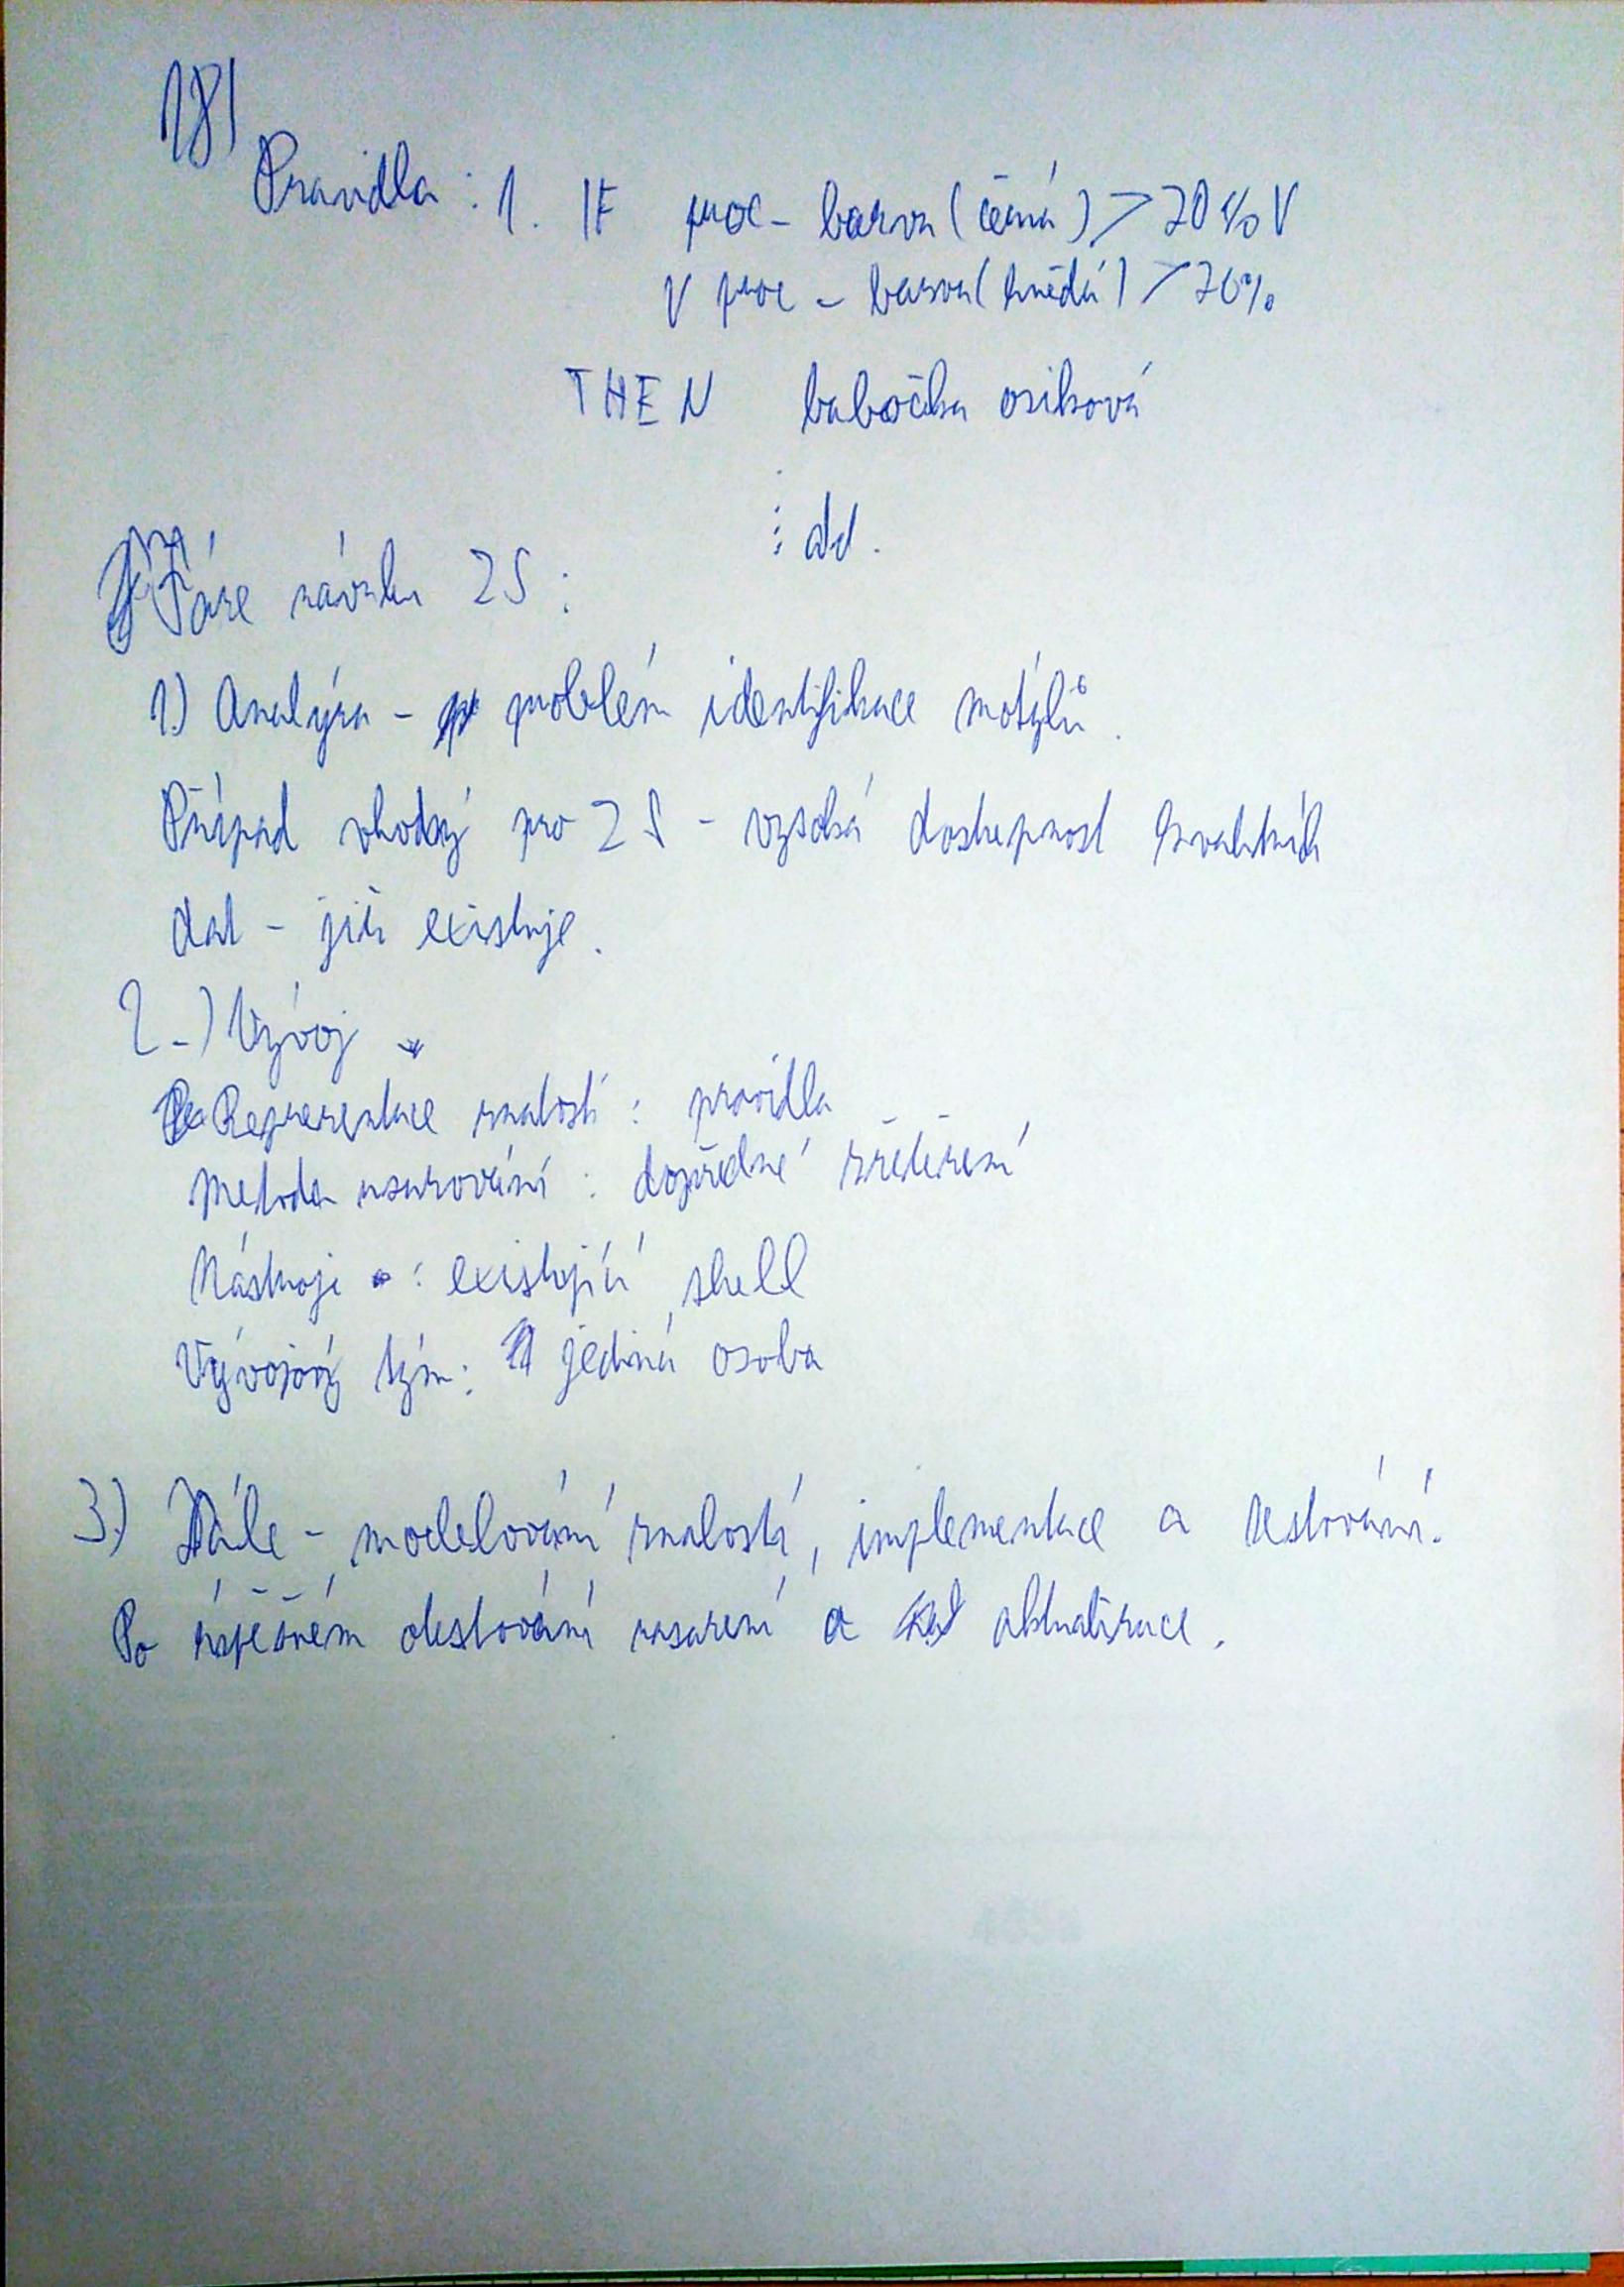 18)
Pravidla: 1. IF proc-barva(černá) > 70% V
V proc-barva(hnědá) > 70%
THEN babočka osiková
⋮ atd.
Fáze návrhu ZS:
1.) Analýza - problém identifikace motýlů.
Případ vhodný pro ZS - vysoká dostupnost kvalitních
dat - již existuje.
2.) Vývoj
Reprezentace znalostí: pravidla
Metoda usuzování: dopředné řetězení
Nástroje: existující shell
Vývojový tým: jediná osoba
3.) Dále - modelování znalostí, implementace a testování.
Po úspěšném otestování nasazení a aktualizace.